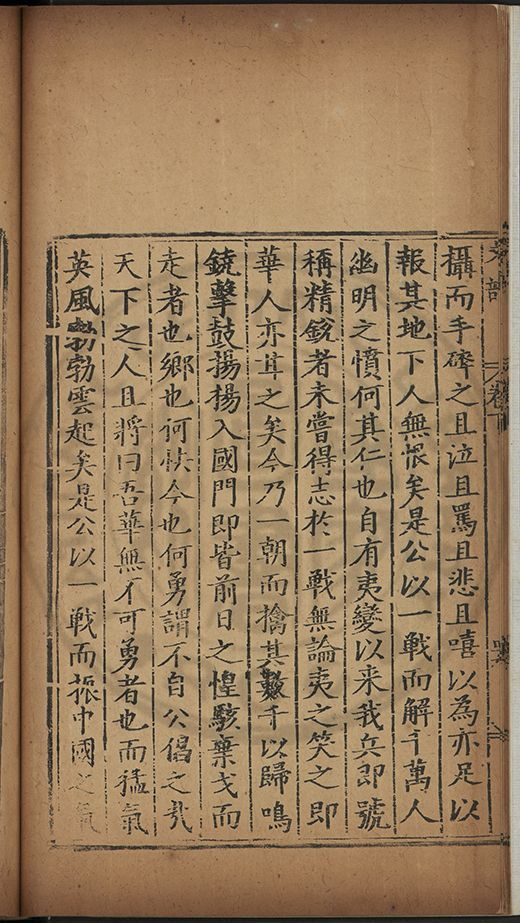 攝而手磔之且泣且罵且悲且嘻以為亦足以
報其地下人無恨矣是公以一戰而解千萬人
幽明之憤何其仁也自有夷變以来我兵即號
稱精銳者未嘗得志於一戰無論夷之笑之即
華人亦耳之矣今乃一朝而擒其數千以歸鳴
鐃擊鼓揚揚入國門即皆前日之惶駭棄戈而
走者也鄉也何怏今也何勇謂不自公倡之哉
天下之人且將曰吾華無不可勇者也而猛氣
英風勃勃雲起矣是公以一戰而振中國之氣